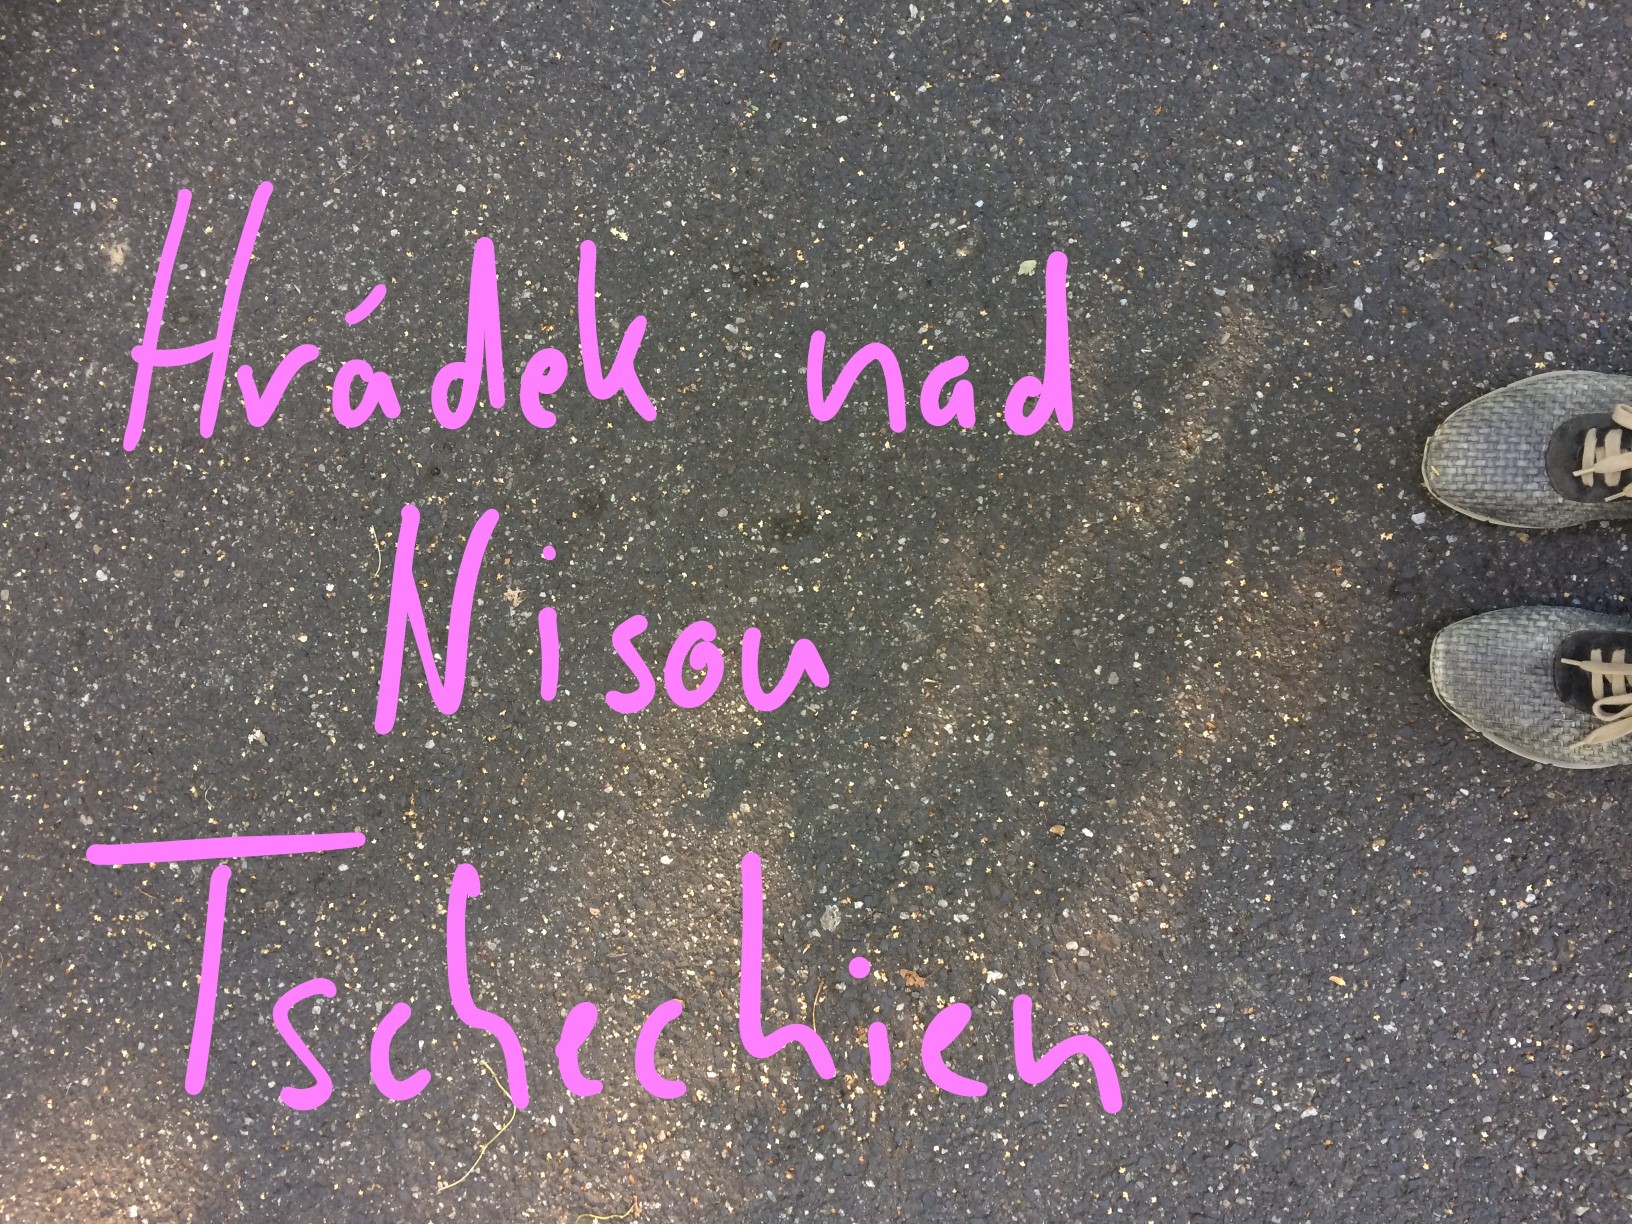 Hrádek nad
Nisou
Tschechien